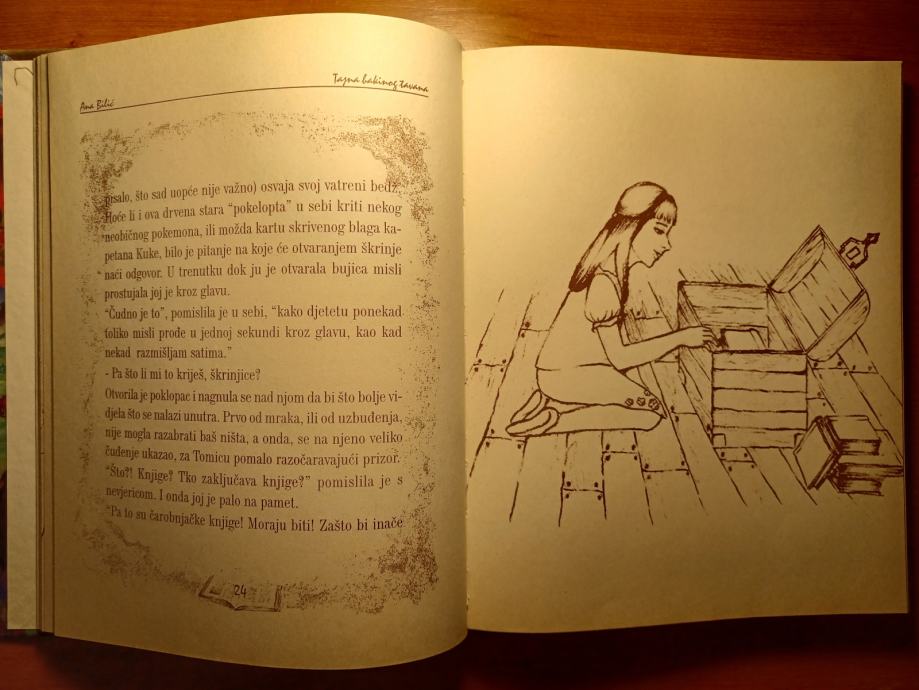 Ana Bilić
Tajna bakinog tavana
pisalo, što sad uopće nije važno) osvaja svoj vatreni bedž.
Hoće li i ova drvena stara “pokelopta” u sebi kriti nekog
neobičnog pokemona, ili možda kartu skrivenog blaga ka-
petana Kuke, bilo je pitanje na koje će otvaranjem škrinje
naći odgovor. U trenutku dok ju je otvarala bujica misli
prostujala joj je kroz glavu.
“Čudno je to”, pomislila je u sebi, “kako djetetu ponekad
toliko misli prođe u jednoj sekundi kroz glavu, kao kad
nekad razmišljam satima.”
- Pa što li mi to kriješ, škrinjice?
Otvorila je poklopac i nagnula se nad njom da bi što bolje vi-
djela što se nalazi unutra. Prvo od mraka, ili od uzbuđenja,
nije mogla razabrati baš ništa, a onda, se na njeno veliko
čuđenje ukazao, za Tomicu pomalo razočaravajući prizor.
“Što?! Knjige? Tko zaključava knjige?” pomislila je s
nevjericom. I onda joj je palo na pamet.
“Pa to su čarobnjačke knjige! Moraju biti! Zašto bi inače
24